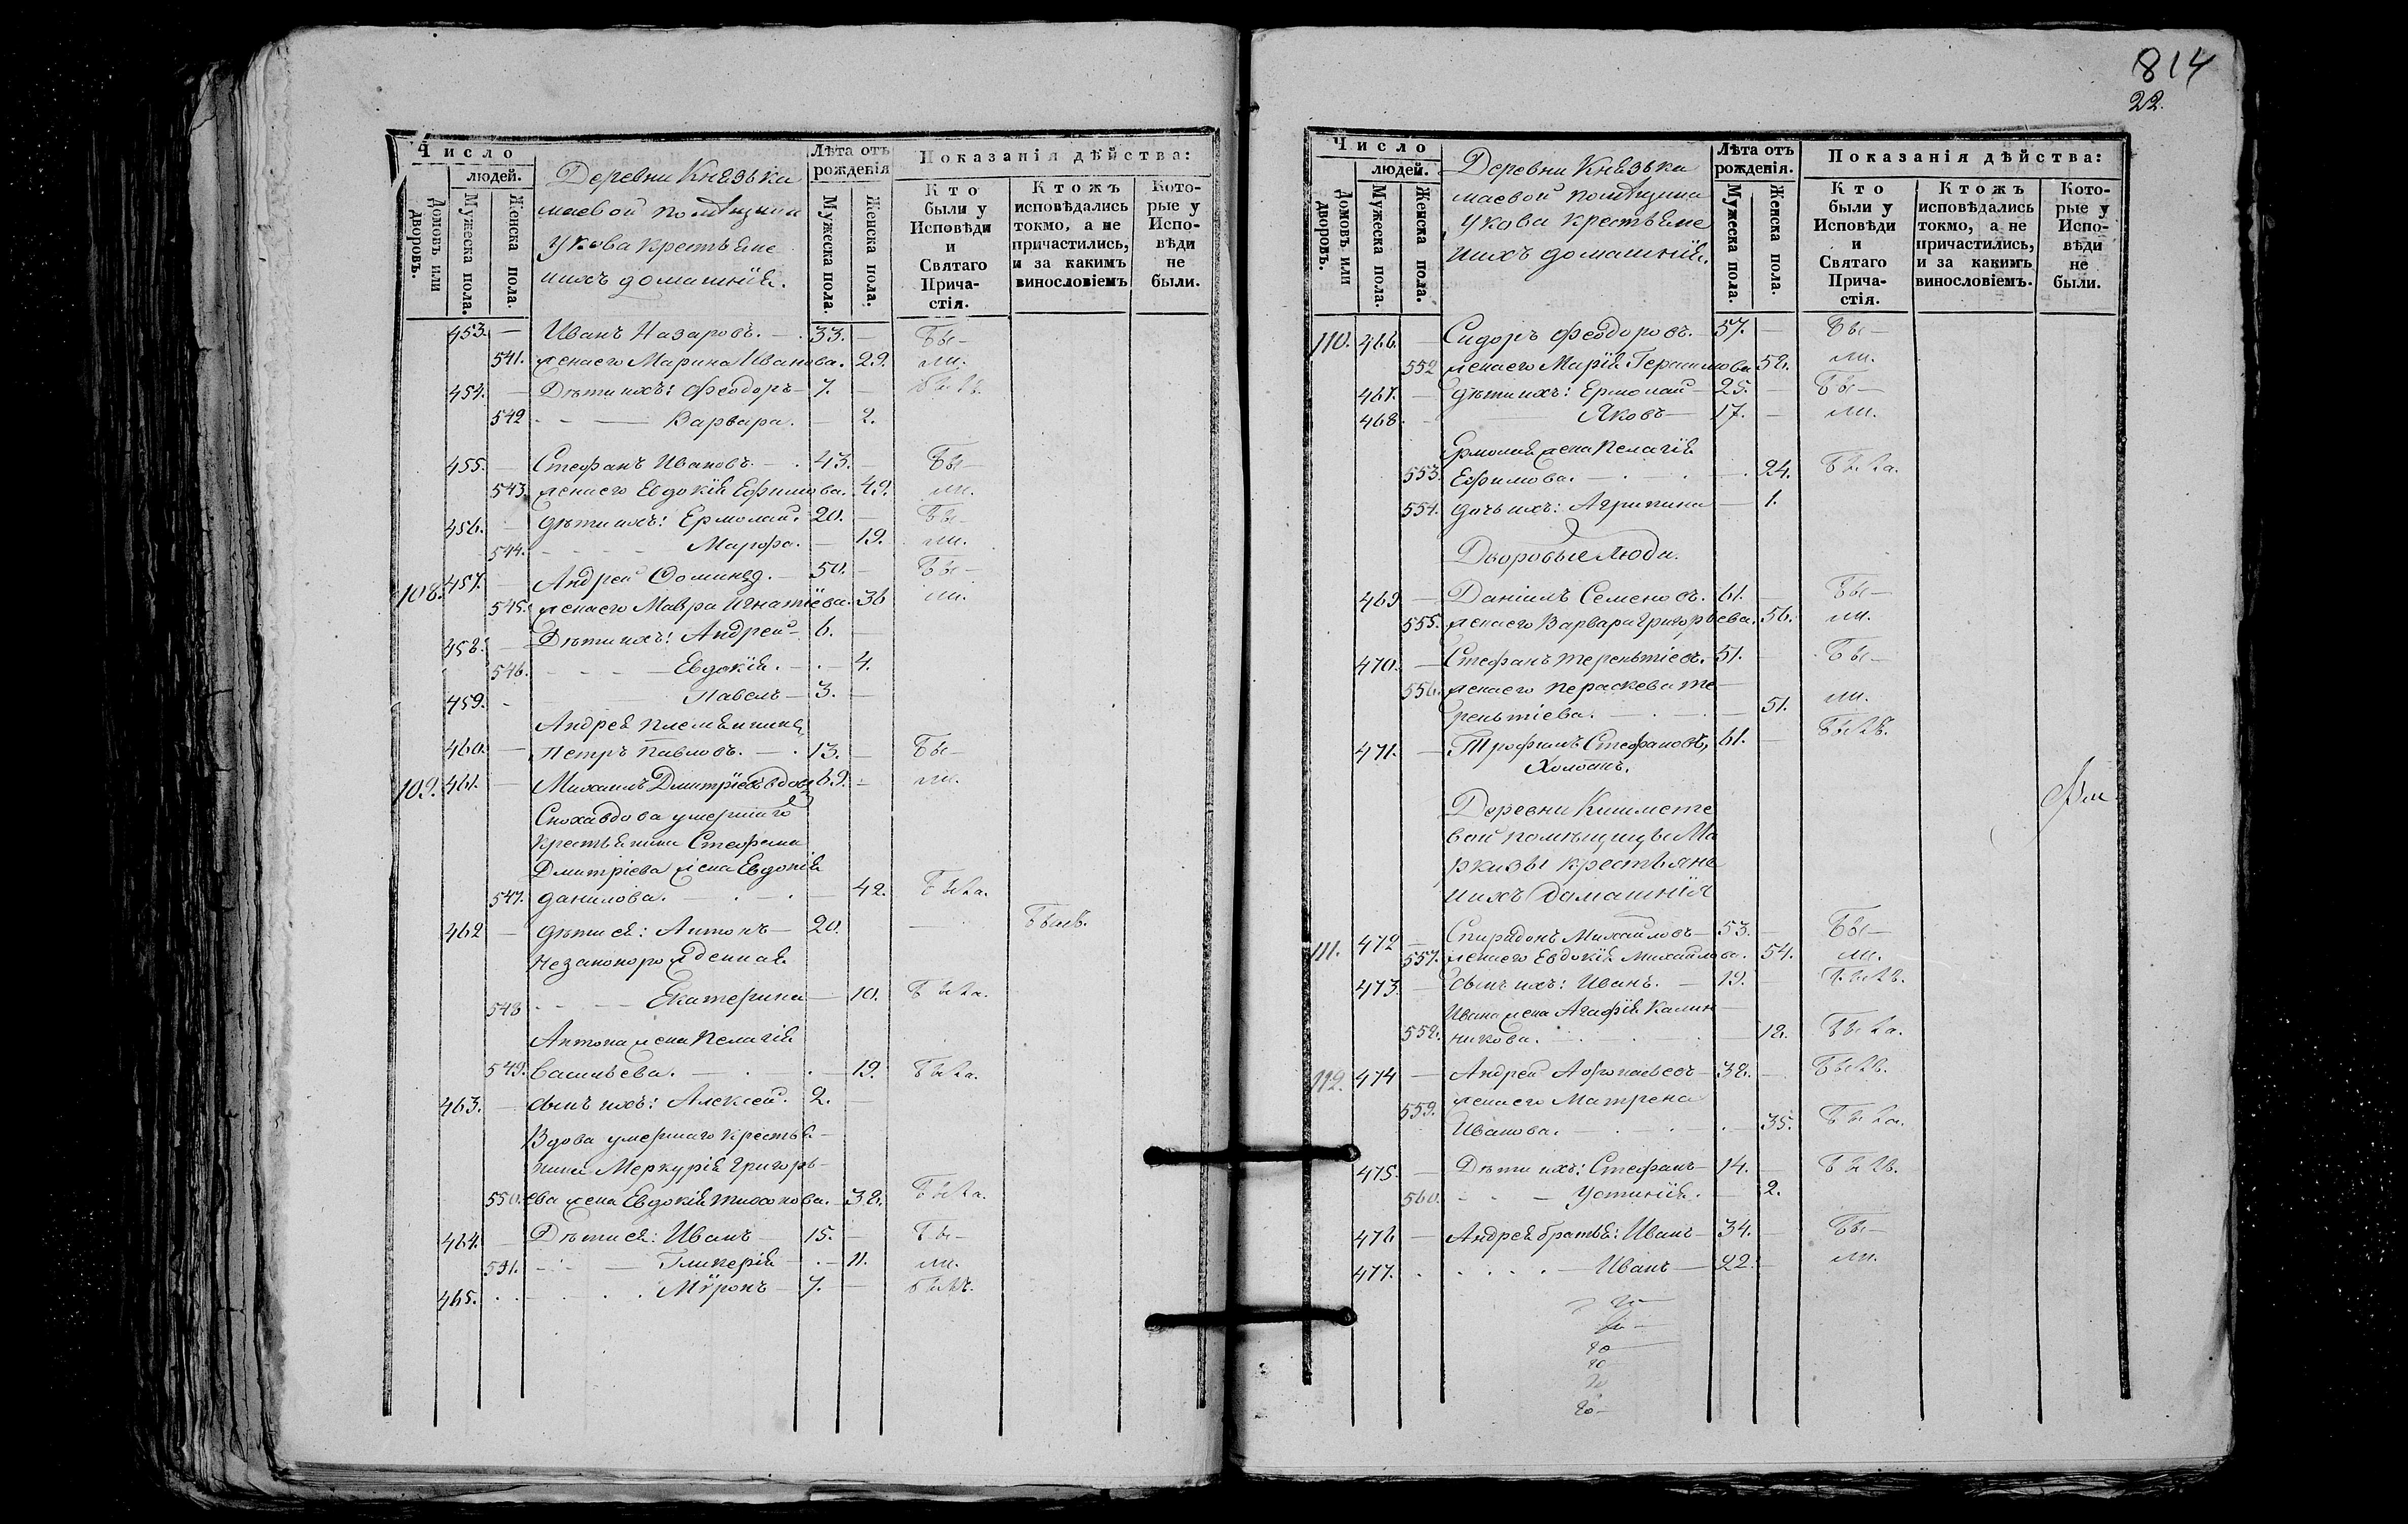 814
22.
Число
людей.
Домовъ или дворовъ.
Мужеска пола.
Женска пола.
Деревни Князька
маевой помѣщика
Укова крестьяне
ихъ домашнія.
Лѣта отъ рожденія
Мужеска пола.
Женска пола.
Показанія дѣйства:
Кто были у Исповѣди и Святаго Прича-стія.
Ктожъ исповѣдались токмо, а не причастились, и за какимъ винословіемъ
Кото-рые у Испо-вѣди не были.
453. — Иванъ Назаровъ. — 33. — Бы-
541. жена его Марина Иванова. 29. ли.
454. — Дѣти ихъ: Феодоръ — 7. — Былъ.
542 — Варвара. — 2.
455. — Стефанъ Ивановъ. — 43. — Бы-
543. жена его Евдокія Ефимова. 49. ли.
456. — дѣти ихъ: Ермолай. 20. — Бы-
544. Марфа. — 19. ли.
108. 457. — Андрей Фоминъ. — 50. — Бы-
545. жена его Мавра Игнатіева. 36 ли.
458. — Дѣти ихъ: Андрей — 6. —
546. — Евдокія. — 4.
459. Павелъ — 3. —
Андрея племянникъ
460. — Петръ Павловъ. — 13. — Бы-
109. 461. — Михаилъ Дмитріевъ вдовъ 69. — ли.
Сноха вдова умершаго
крестьянина Стефана
Дмитріева жена Евдокія
547. данилова. — 42. Была.
462 — дѣти ея: Антонъ — 20. — Былъ.
Незаконорожденная
548 — Екатерина — 10. Была.
Антона жена Пелагія
549. Васильева. — 19. Была.
463. — сынъ ихъ: Алексей. 2. —
Вдова умершаго крестья-
нина Меркурія Григорь-
550. ева жена Евдокія Тихонова. 38. Была.
464. — Дѣти ея: Иванъ — 15. — Бы-
551. — Гликерія — 11. ли.
465. Мѵронъ — 7. — Былъ.
Число
людей.
Домовъ или дворовъ.
Мужеска пола.
Женска пола.
Деревни Князька
маевой помѣщика
Укова крестьяне
ихъ домашнія.
Лѣта отъ рожденія.
Мужеска пола.
Женска пола.
Показанія дѣйства:
Кто были у Исповѣди и Святаго Прича-стія.
Ктожъ исповѣдались токмо, а не причастились, и за какимъ винословіемъ.
Кото-рые у Испо-вѣди не были.
110. 466. — Сидоръ Феодоровъ. — 57. — Бы-
552 жена его Марія Герасимова 58. ли.
467. — дѣти ихъ: Ермолай — 25. — Бы-
468. Яковъ — 17. — ли.
Ермолая жена Пелагія
553. Ефимова. — 24. Была.
554. дочь ихъ: Агрипина — 1.
Дворовые люди.
469 — Даніилъ Семеновъ. 61. — Бы-
555. жена его Варвара Григорьева. 56. ли.
470. — Стефанъ Терентіевъ. 51. — Бы-
556. жена его Параскева Те-
рентіева. — 51. ли.
471. — Трофимъ Стефановъ, 61. — Былъ.
Холостъ.
Деревни Кишмете
вой помѣщицы Ма
ркизы крестьяне
ихъ домашнія
111. 472 — Спиридонъ Михайловъ — 53. — Бы-
557. жена его Евдокія Михайлова. 54. ли.
473. — Сынъ ихъ: Иванъ. — 19. — Былъ.
Ивана жена Агафія Калин-
558. никова. — 18. Была.
112. 474 — Андрей Афонасьевъ — 38. — Былъ.
559. жена его Матрена
Иванова. — 35. Была.
475. — Дѣти ихъ: Стефанъ — 14. — Былъ.
560. — Устинія. — 2.
476 — Андрея братья: Иванъ — 34. — Бы-
477. — Иванъ — 22. — ли.